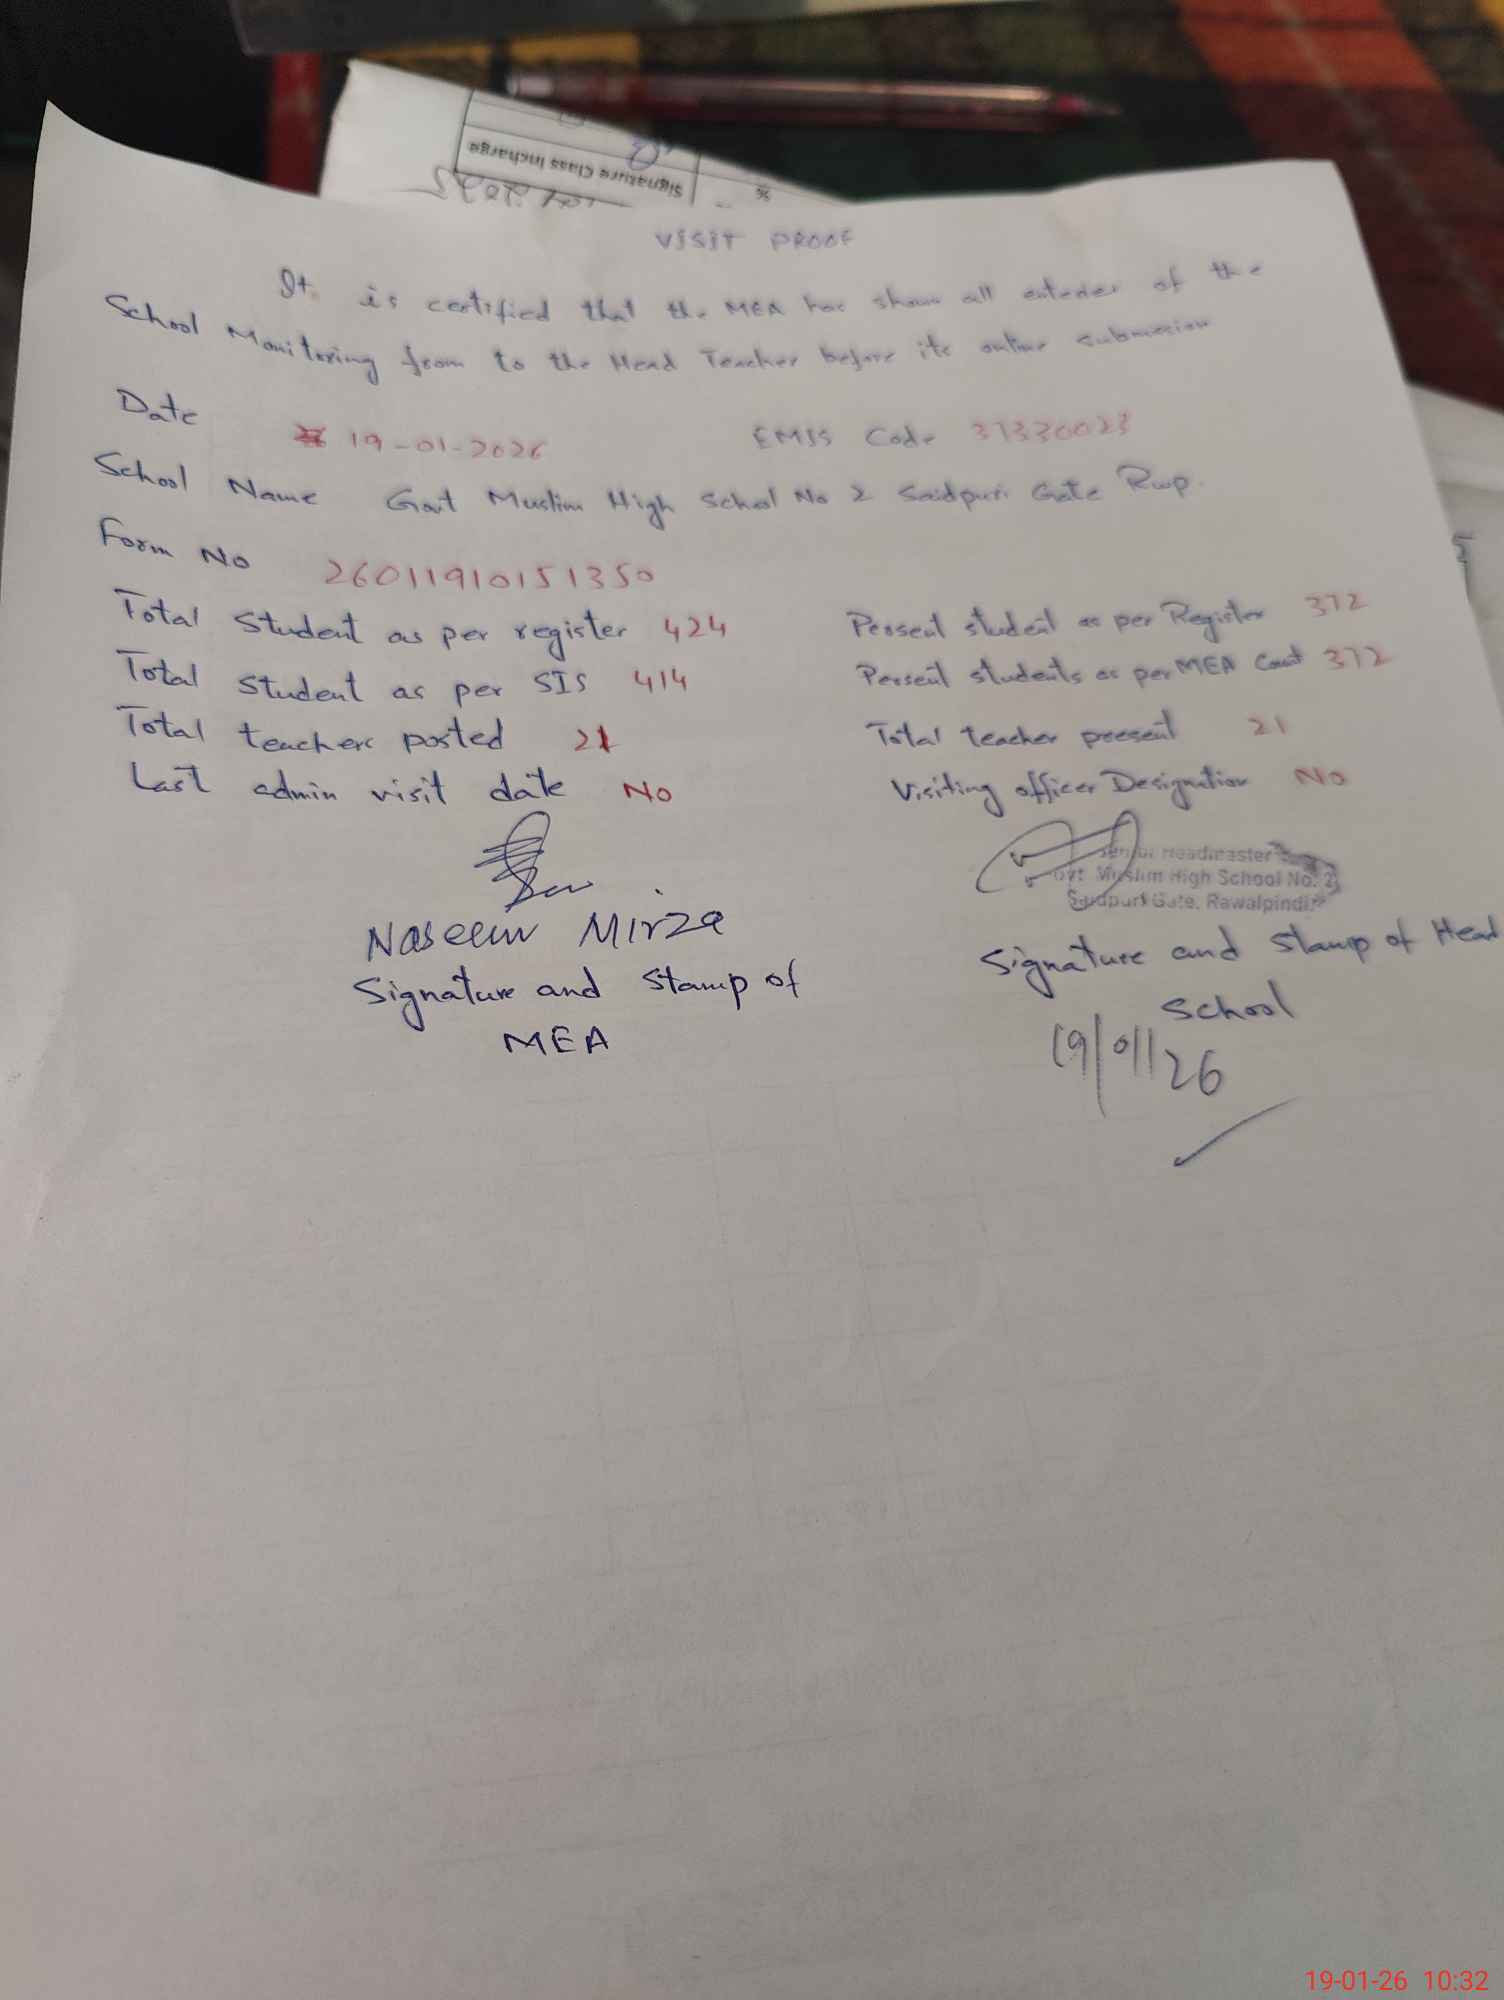 Signature Class Incharge
%
VISIT PROOF
It is certified that the MEA has shown all enteries of the
School Monitoring from to the Head Teacher before its online submission
Date 19-01-2026 EMIS Code 37330023
School Name Govt Muslim High School No 2 Saidpuri Gate Rwp.
Form No 26011910151350
Total Student as per register 424 Persent student as per Register 372
Total Student as per SIS 414 Persent students as per MEA Count 372
Total teachers posted 21 Total teacher present 21
Last admin visit date No Visiting officer Designation No
Senior Headmaster
Govt. Muslim High School No. 2
Saidpuri Gate, Rawalpindi
Naseem Mirza
Signature and Stamp of
MEA
Signature and Stamp of Head
School
19/01/26
19-01-26 10:32